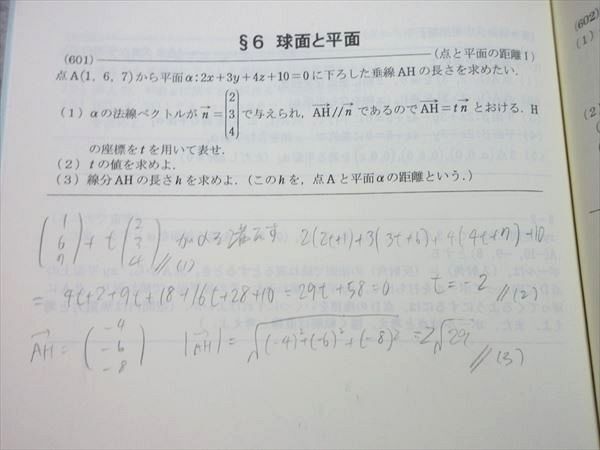 §6 球面と平面
(601) (点と平面の距離Ⅰ)
点A(1, 6, 7)から平面α:2x+3y+4z+10=0に下ろした垂線AHの長さを求めたい.
(1) αの法線ベクトルがn→=(2 3 4)で与えられ, AH→//n→であるのでAH→=tn→とおける. H
の座標をtを用いて表せ.
(2) tの値を求めよ.
(3) 線分AHの長さhを求めよ. (このhを, 点Aと平面αの距離という.)
(1 6 7)+t(2 3 4) // (1) 2(2t+1)+3(3t+6)+4(4t+7)+10
=4t+2+9t+18+16t+28+10=29t+58=0 t=-2 // (2)
AH→=(-4 -6 -8) |AH→|=√(-4)²+(-6)²+(-8)²=2√29 // (3)
(602)
(1)